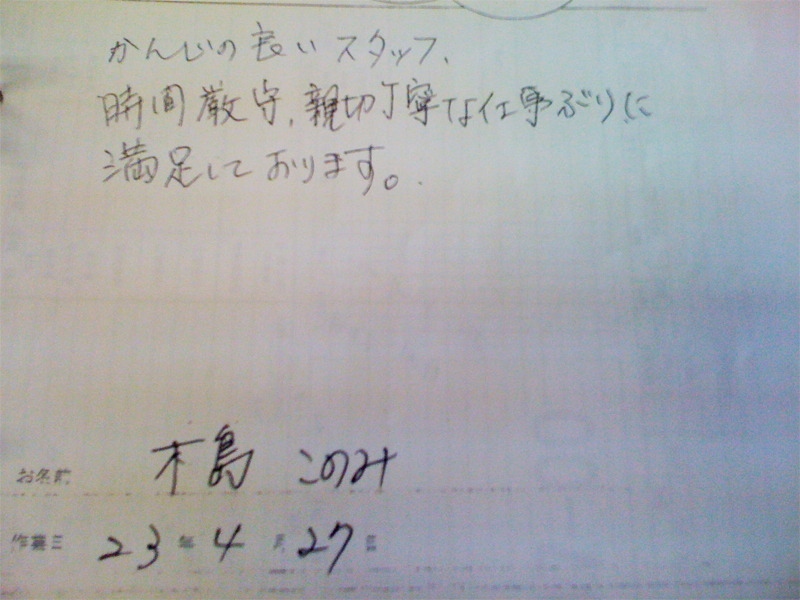 かんじの良いスタッフ、
時間厳守、親切丁寧な仕事ぶりに
満足しております。
お名前 木島 このみ
作業日 23年4月27日